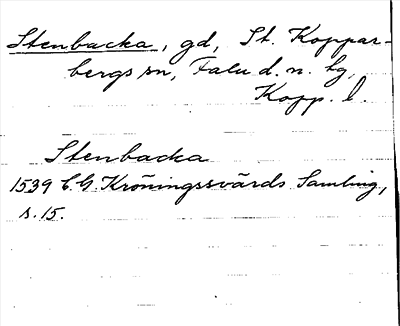 Stenbacka, gd, St. Koppar-
bergs sn, Falu d. n. tg,
Kopp. l.
Stenbacka
1539 C. G. Kröningssvärds Samling,
s. 15.